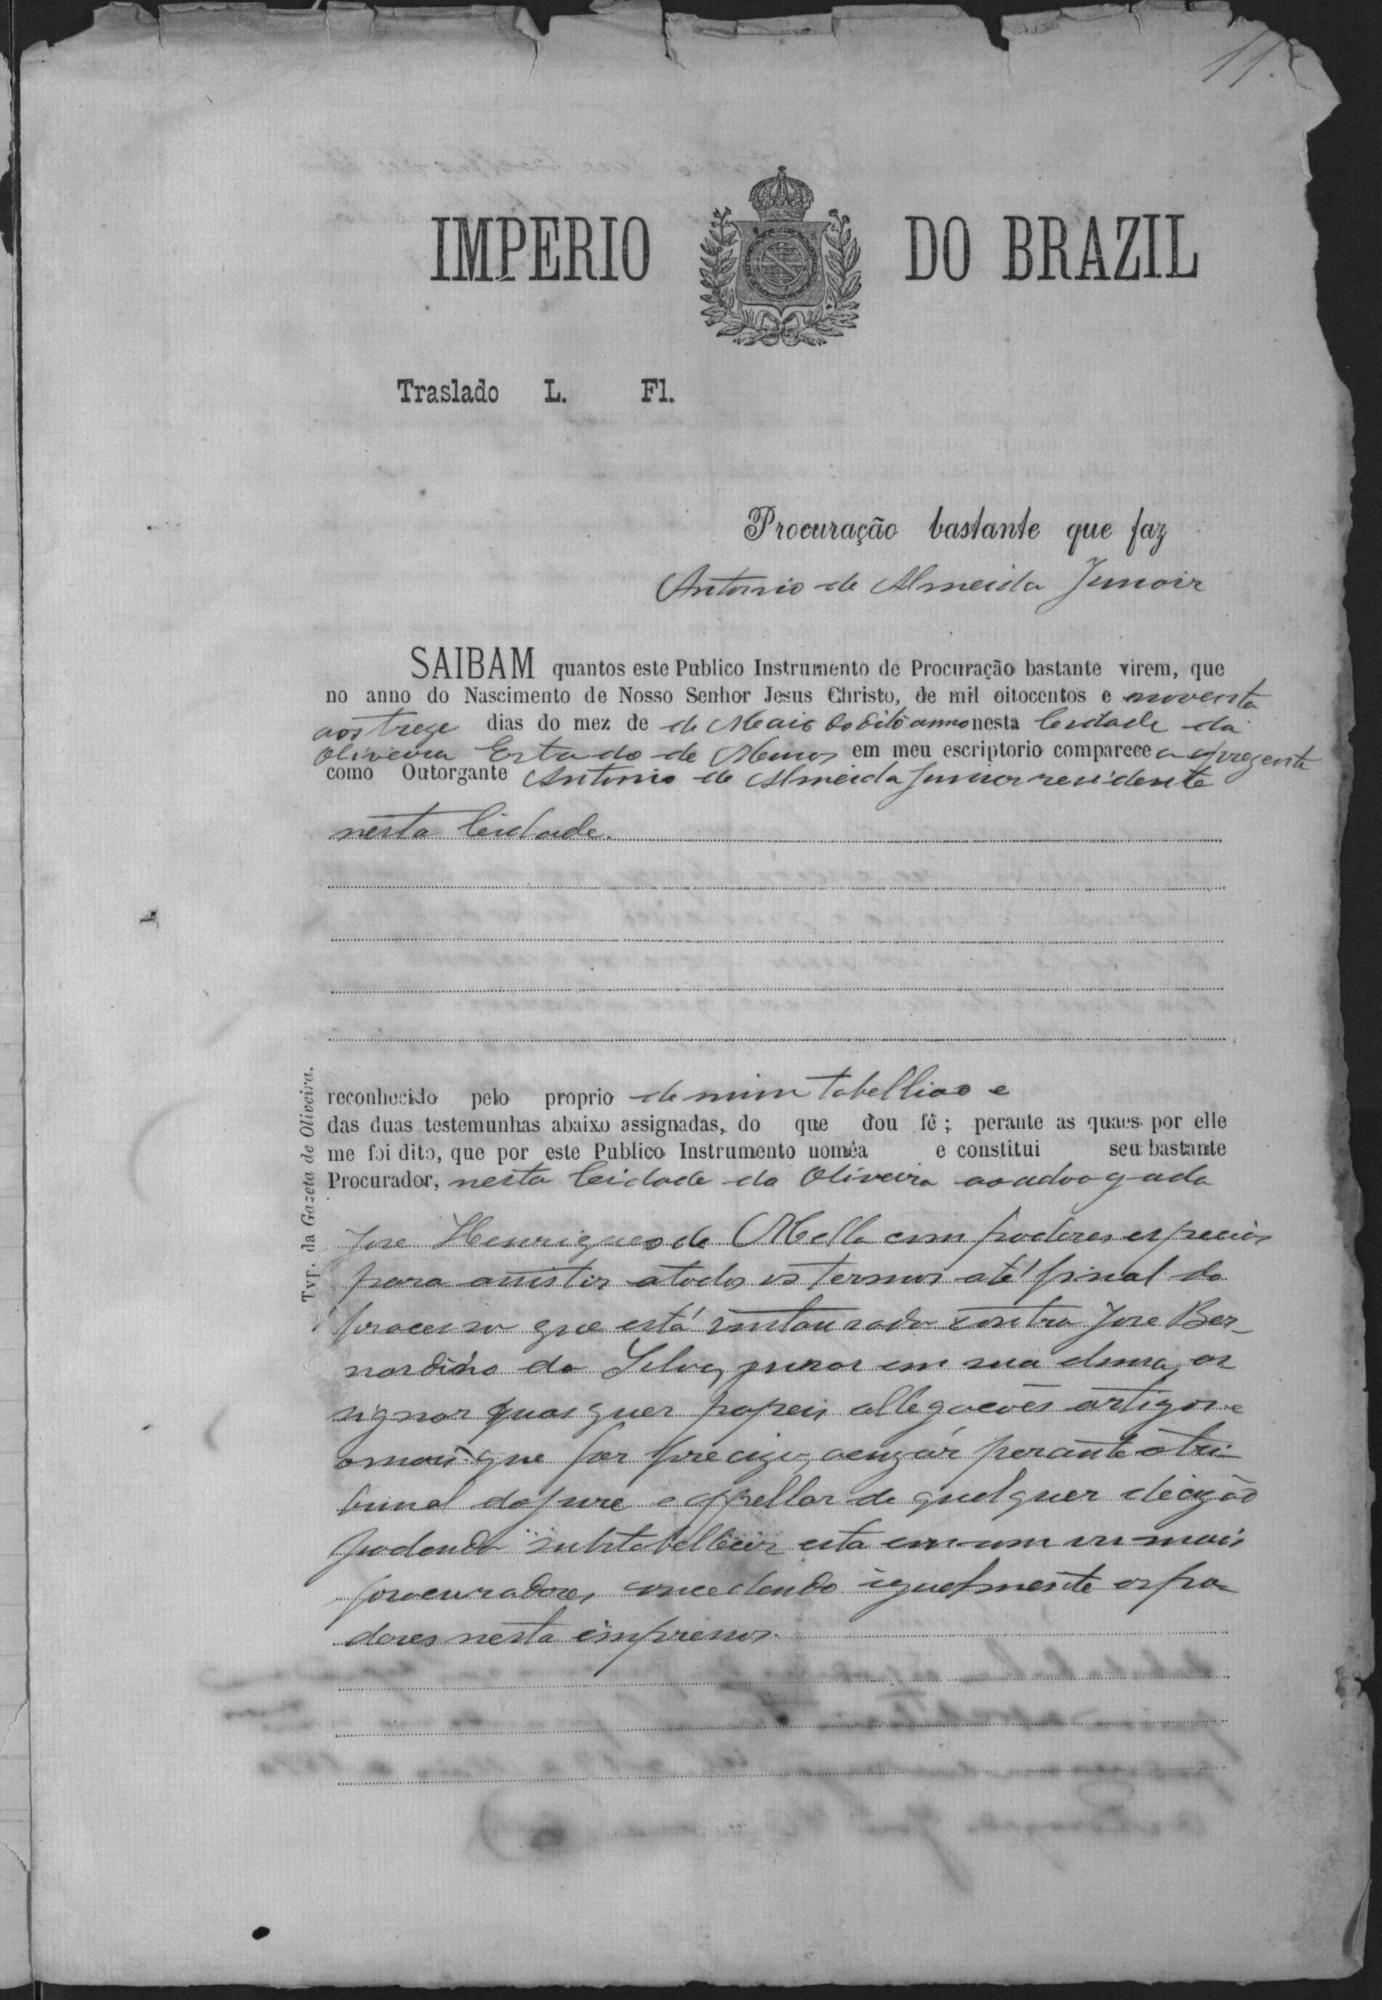 11.
IMPERIO DO BRAZIL
Traslado L. Fl.
Procuração bastante que faz
Antonio de Almeida Junoir
SAIBAM quantos este Publico Instrumento de Procuração bastante virem, que
no anno do Nascimento de Nosso Senhor Jesus Christo, de mil oitocentos e noventa
aos treze dias do mez de de Maio do dito anno nesta Cidade da
Oliveira Estado de Minas em meu escriptorio comparece a presente
como Outorgante Antonio de Almeida Junior residente
nesta Cidade.
reconhecido pelo proprio de mim tabellião e
das duas testemunhas abaixo assignadas, do que dou fé; perante as quaes por elle
me foi dito, que por este Publico Instrumento nomêa e constitui seu bastante
Procurador, nesta Cidade da Oliveira ao advogado
Jose Henriques de Mello com poderes especiais
para assistir a todos os termos até final do
processo que está instaurado contra Jose Ber-
nardino da Silva, jurar em sua alma, as
signar quaesquer papeis allegações artigos e
o mais que for precizo, acuzár perante o tri-
bunal do jure e appellar de qualquer decizão
podendo substabellecer esta em um ou mais
procuradores, concedendo igualmente os po-
deres nesta impressos.
Typ. da Gazeta de Oliveira.